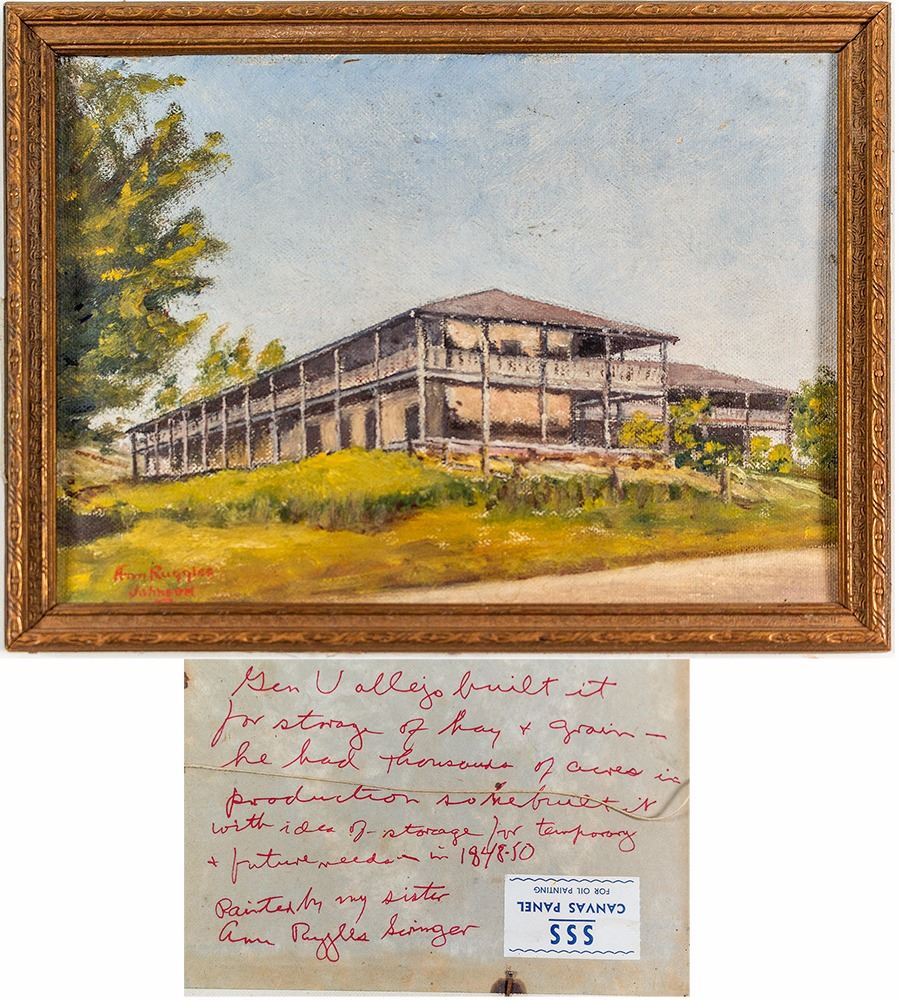 Ann Ruggles
Johnson
Gen Vallejo built it
for storage of hay + grain —
he had thousands of acres in
production so he built it
with idea of storage for temporary
+ future needs — in 1848-50
Painted by my sister
Ann Ruggles
SSS
CANVAS PANEL
FOR OIL PAINTING